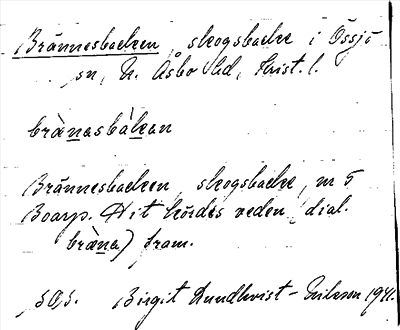 Brännesbacken, skogsbacke i Össjö
sn, N. Åsbo hd, Krist. l.
brὰnasbákan
Brännesbacken, skogsbacke, nr 5
Boarp. Hit kördes veden (dial.
bràna) fram.
SOJ. Birgit Lundkvist-Nilsson 1941.